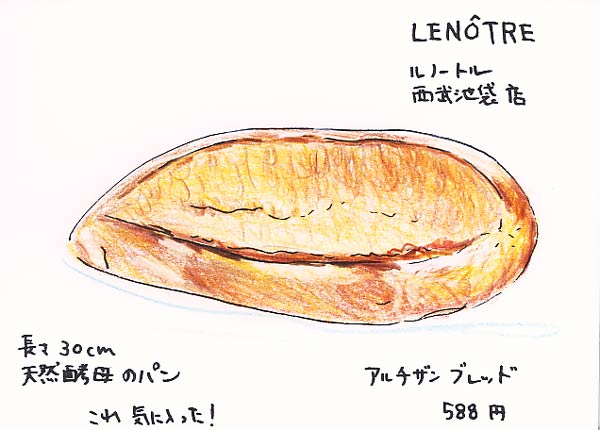 LENÔTRE
ルノートル
西武池袋店
長さ 30cm
天然酵母のパン
これ 気に入った!
アルチザン ブレッド
588 円